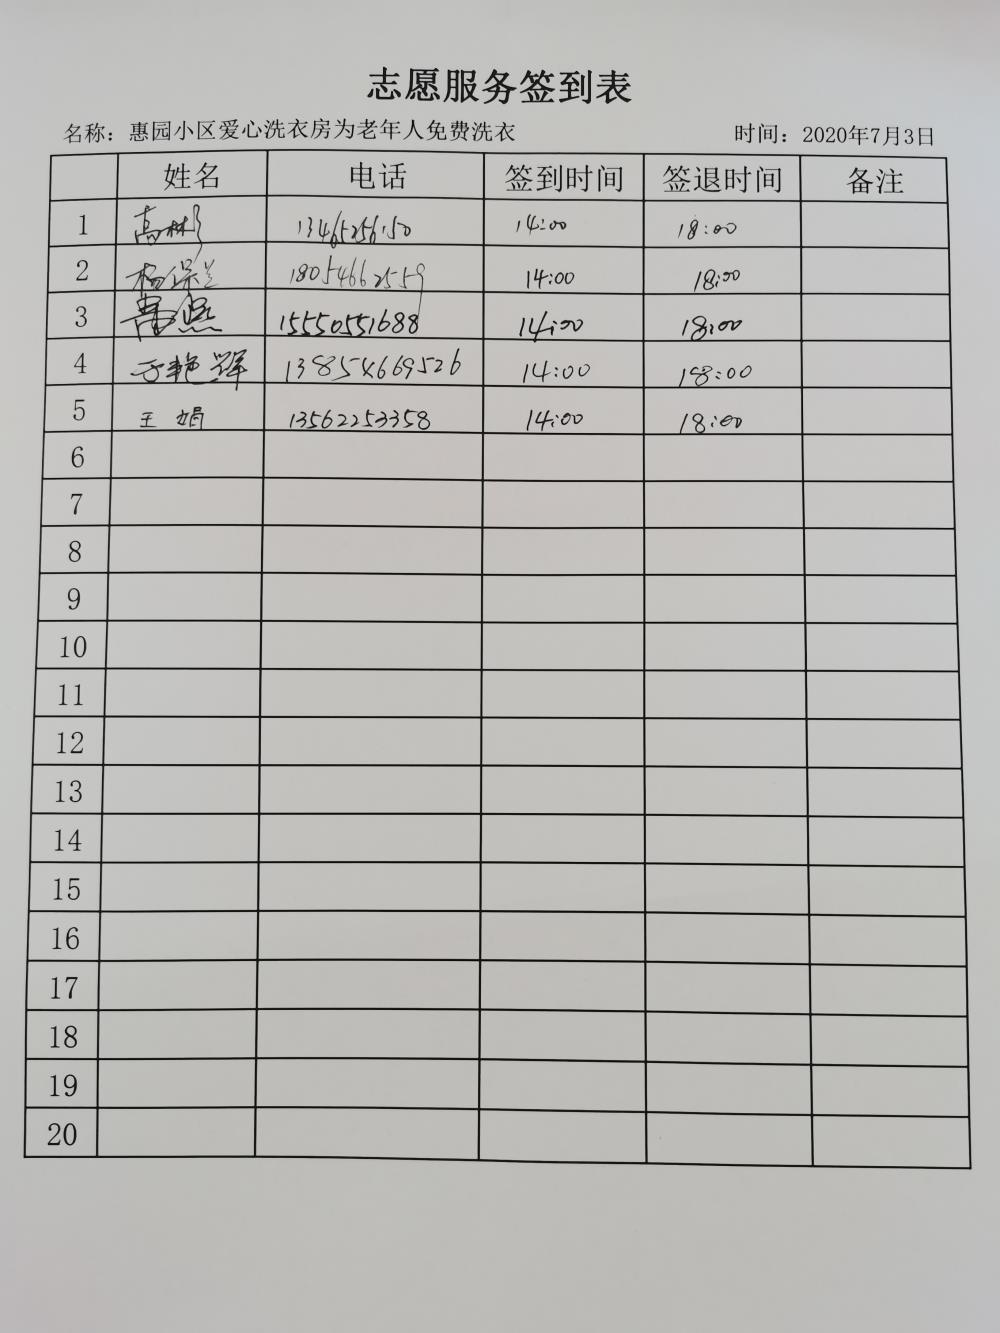 志愿服务签到表
名称：惠园小区爱心洗衣房为老年人免费洗衣 时间：2020年7月3日
姓名 电话 签到时间 签退时间 备注
1 高彬 13465256150 14:00 18:00
2 杨保兰 18054662559 14:00 18:00
3 燕 15550551688 14:00 18:00
4 于艳辉 13854669526 14:00 18:00
5 王娟 13562253358 14:00 18:00
6
7
8
9
10
11
12
13
14
15
16
17
18
19
20